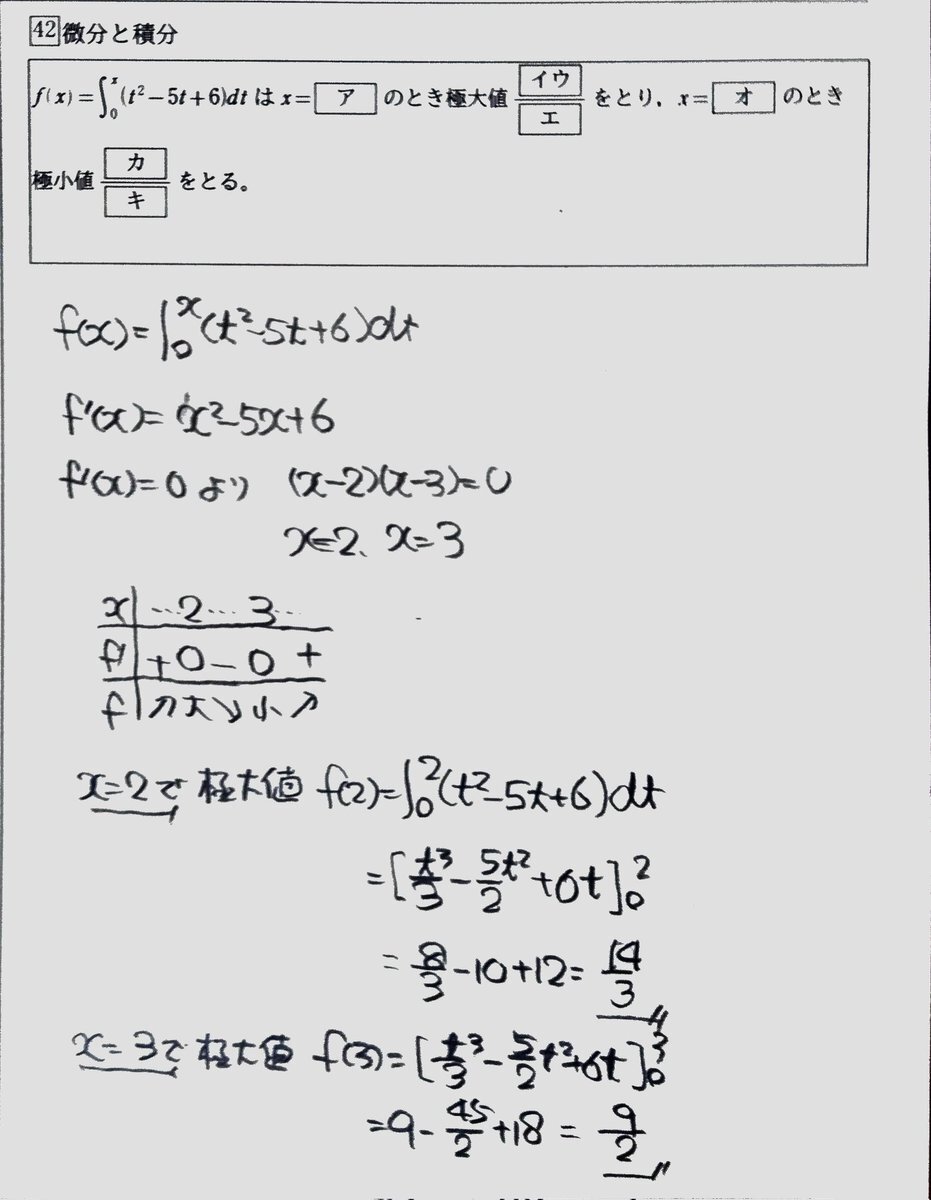 42 微分と積分
f(x)=∫₀ˣ(t²−5t+6)dt は x= ア のとき極大値 イウ/エ をとり，x= オ のとき
極小値 カ/キ をとる。
f(x)=∫₀ˣ(t²-5t+6)dt
f'(x)=x²-5x+6
f'(x)=0より (x-2)(x-3)=0
x=2、x=3
x | … 2 … 3 …
f' | + 0 − 0 +
f | ↗ 大 ↘ 小 ↗
x=2で 極大値 f(2)=∫₀²(t²-5t+6)dt
=[t³/3 - 5t²/2 + 6t]₀²
= 8/3 - 10 + 12 = 14/3
x=3で 極大値 f(3)=[t³/3 - 5/2 t² + 6t]₀³
=9 - 45/2 + 18 = 9/2